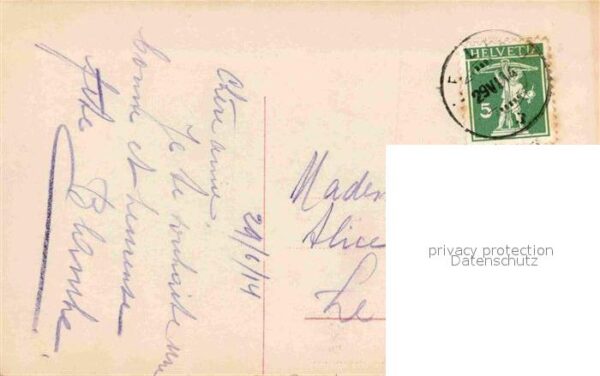 29/6/14
Chère amie.
Je te souhaite une
bonne et heureuse
fête
Blanche.
Madem
Alice
Le
HELVETIA
5
29.VI.14
privacy protection
Datenschutz